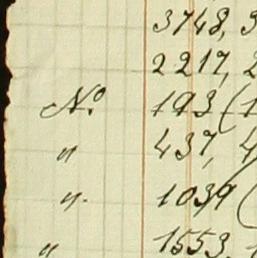 3748, 3
2217, 2
No. 193 (1
" 437, 4
" 1039 (
" 1553, 1